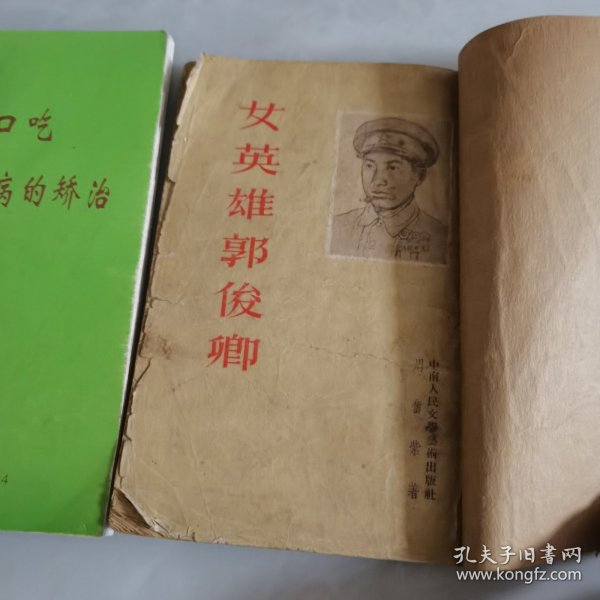 口吃
病的矫治
4
女英雄郭俊卿
中南人民文學藝術出版社
著
孔夫子旧书网
www.kongfz.com